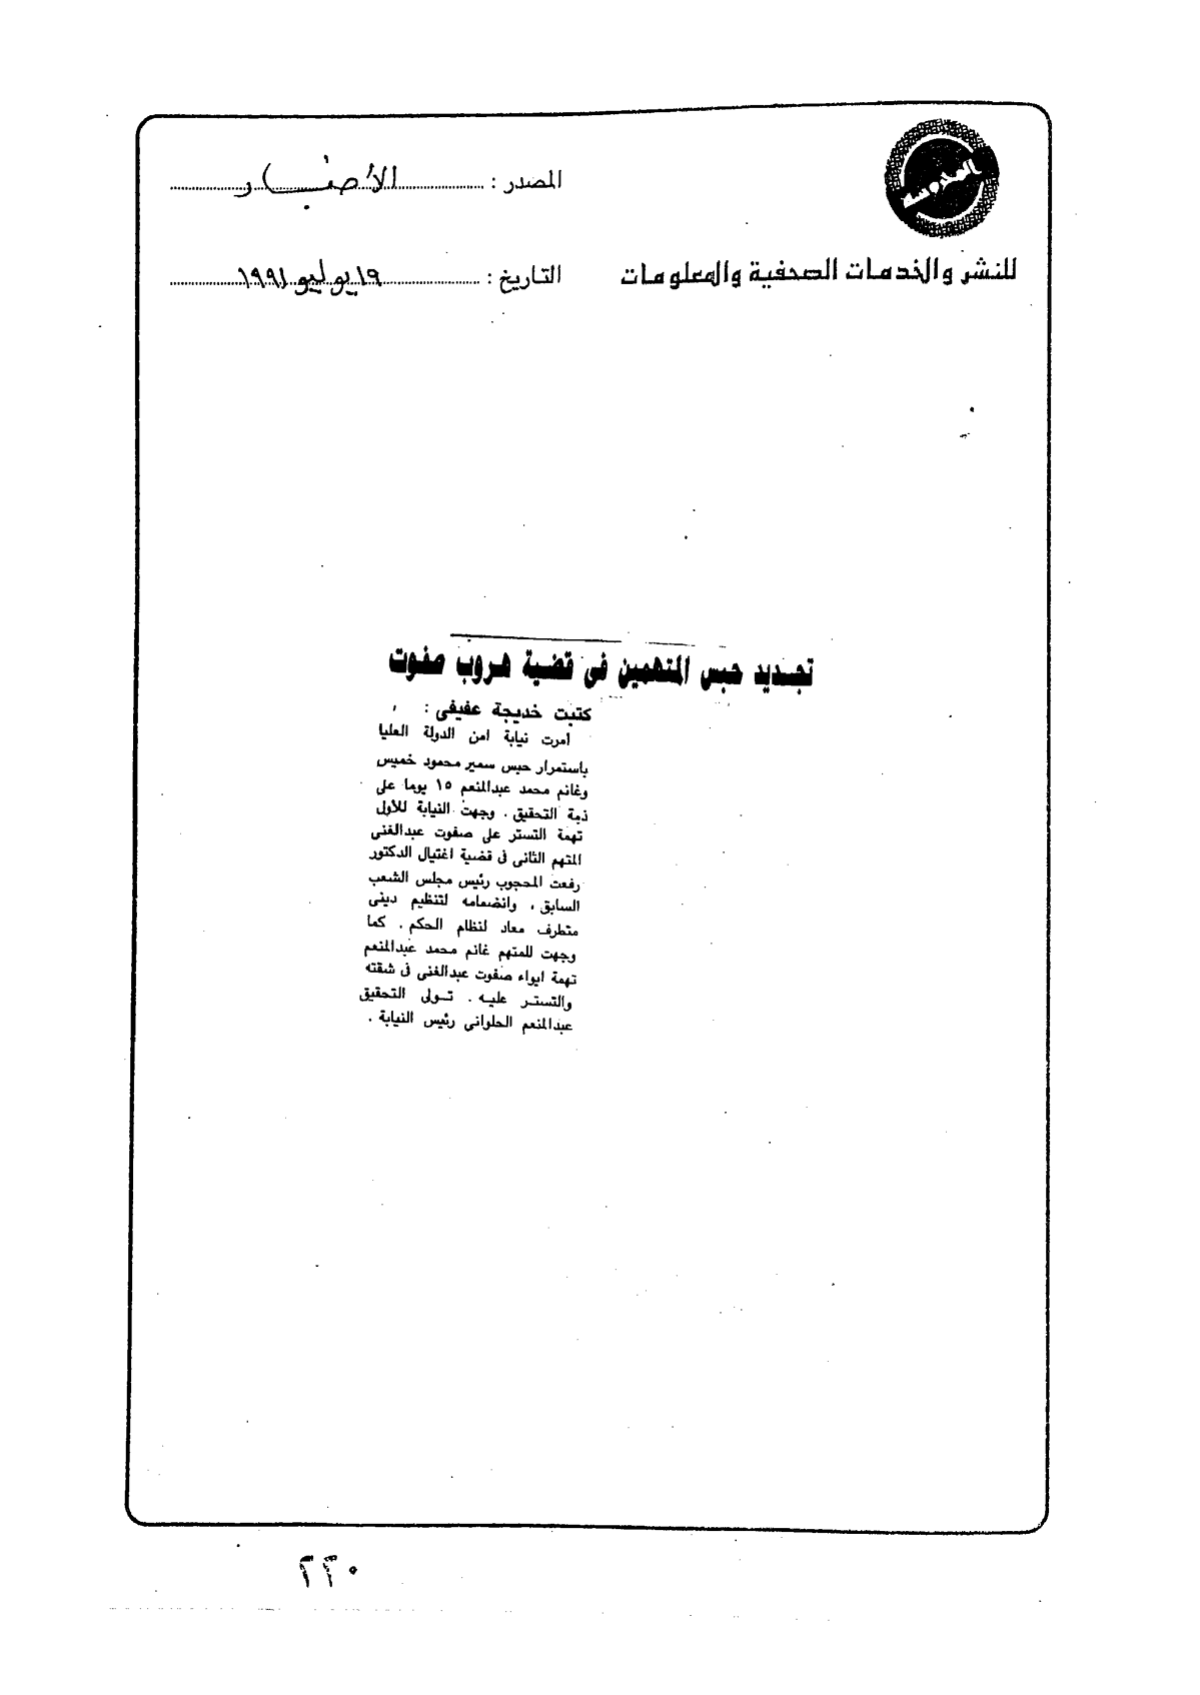 المصدر : الأخبار
للنشر والخدمات الصحفية والمعلومات
التاريخ : ١٩ يوليو ١٩٩١
تجديد حبس المتهمين فى قضية هروب صفوت
كتبت خديجة عفيفى :
أمرت نيابة امن الدولة العليا
باستمرار حبس سمير محمود خميس
وغانم محمد عبدالمنعم ١٥ يوما على
ذمة التحقيق . وجهت النيابة للأول
تهمة التستر على صفوت عبدالغنى
المتهم الثانى فى قضية اغتيال الدكتور
رفعت المحجوب رئيس مجلس الشعب
السابق ، وانضمامه لتنظيم دينى
متطرف معاد لنظام الحكم . كما
وجهت للمتهم غانم محمد عبدالمنعم
تهمة ايواء صفوت عبدالغنى فى شقته
والتستر عليه . تولى التحقيق
عبدالمنعم الحلوانى رئيس النيابة .